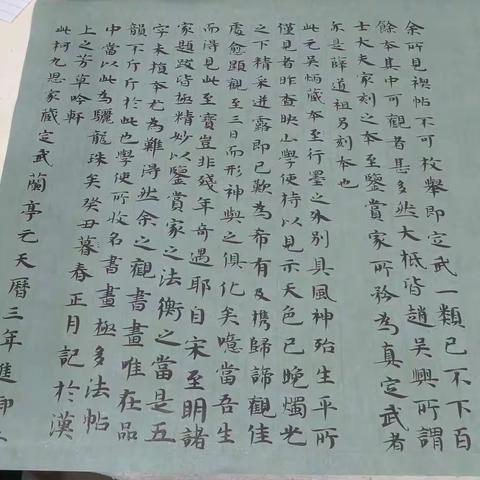 余所見禊帖不可枚舉即定武一類已不下百
餘本其中可觀者甚多然大柢皆趙吳興所謂
士大夫家刻之本至鑒賞家所矜為真定武者
亦是薛道祖另刻本也
此元吳炳藏本至行墨之外別具風神殆生平所
僅見者昨查映山學使持以見示天色已晚燭光
之下精采迸露即已歎為希有及攜歸諦觀佳
處愈顯觀至三日而形神與之俱化矣噫當吾生
而得見此至寶豈非殘年奇遇耶自宋至明諸
家題跋皆極精妙以鑒賞家之法衡之當是五
字未損本尤為難得然余之觀書畫唯在品
韻不斤斤於此也學使所收名書畫極多法帖
中當以此為驪龍珠矣癸丑暮春正月記於漢
上之芳草吟軒
此柯九思家藏定武蘭亭元天曆三年進御